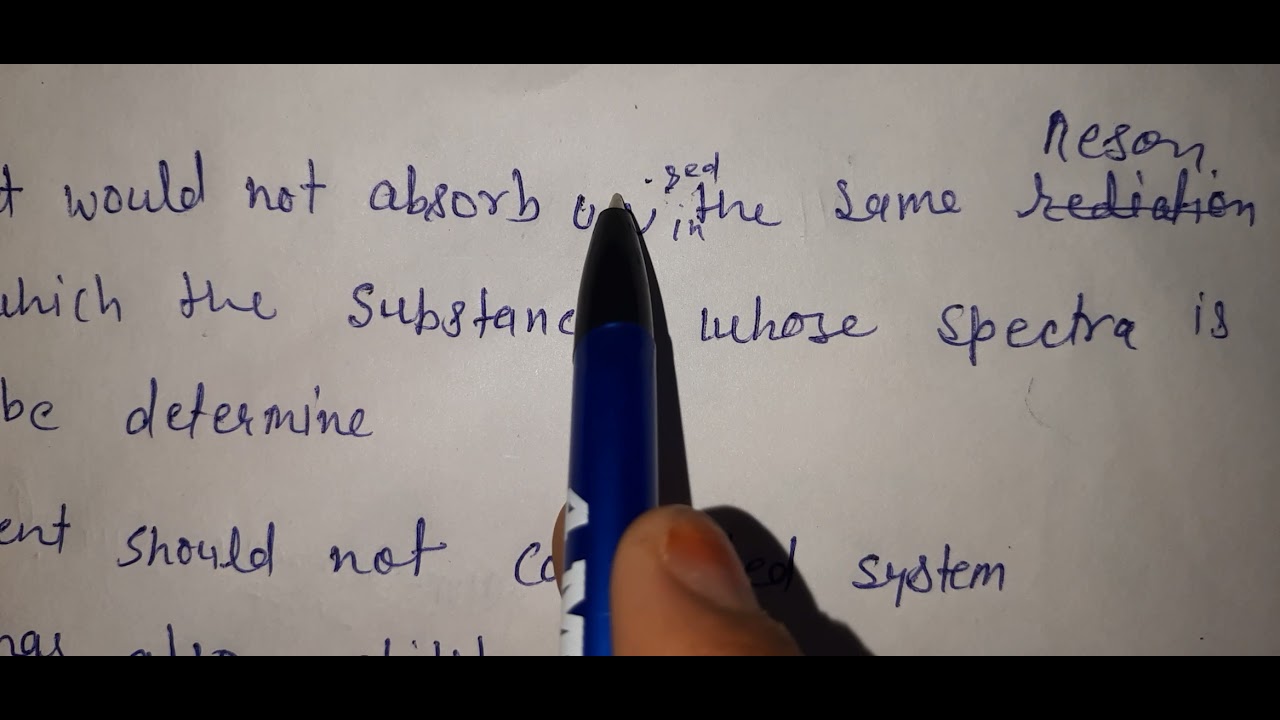 Reson
t would not absorb in the same rediation
which the Substanc whose spectra is
be determine
ent should not co ed system